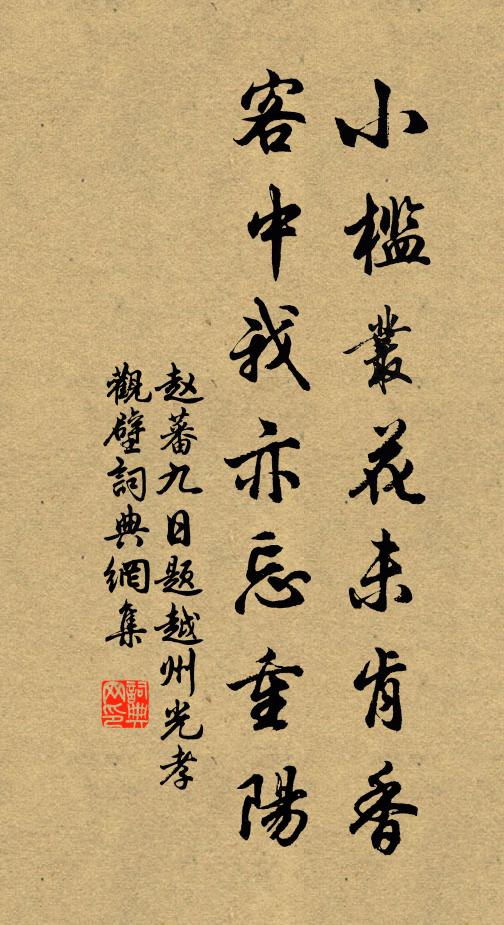 小檻叢花未肯香
客中我亦忘重陽
赵蕃九日题越州光孝
觀壁詞典網集
詞典网印